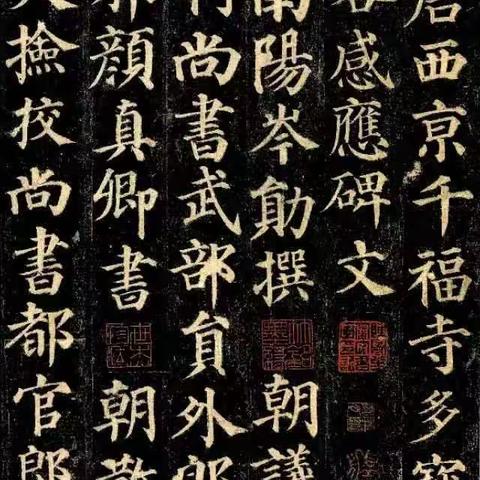 唐西京千福寺多寶
塔感應碑文
南陽岑勛撰 朝議
行尚書武部員外郎
邪顏真卿書 朝散
大撿挍尚書都官郎